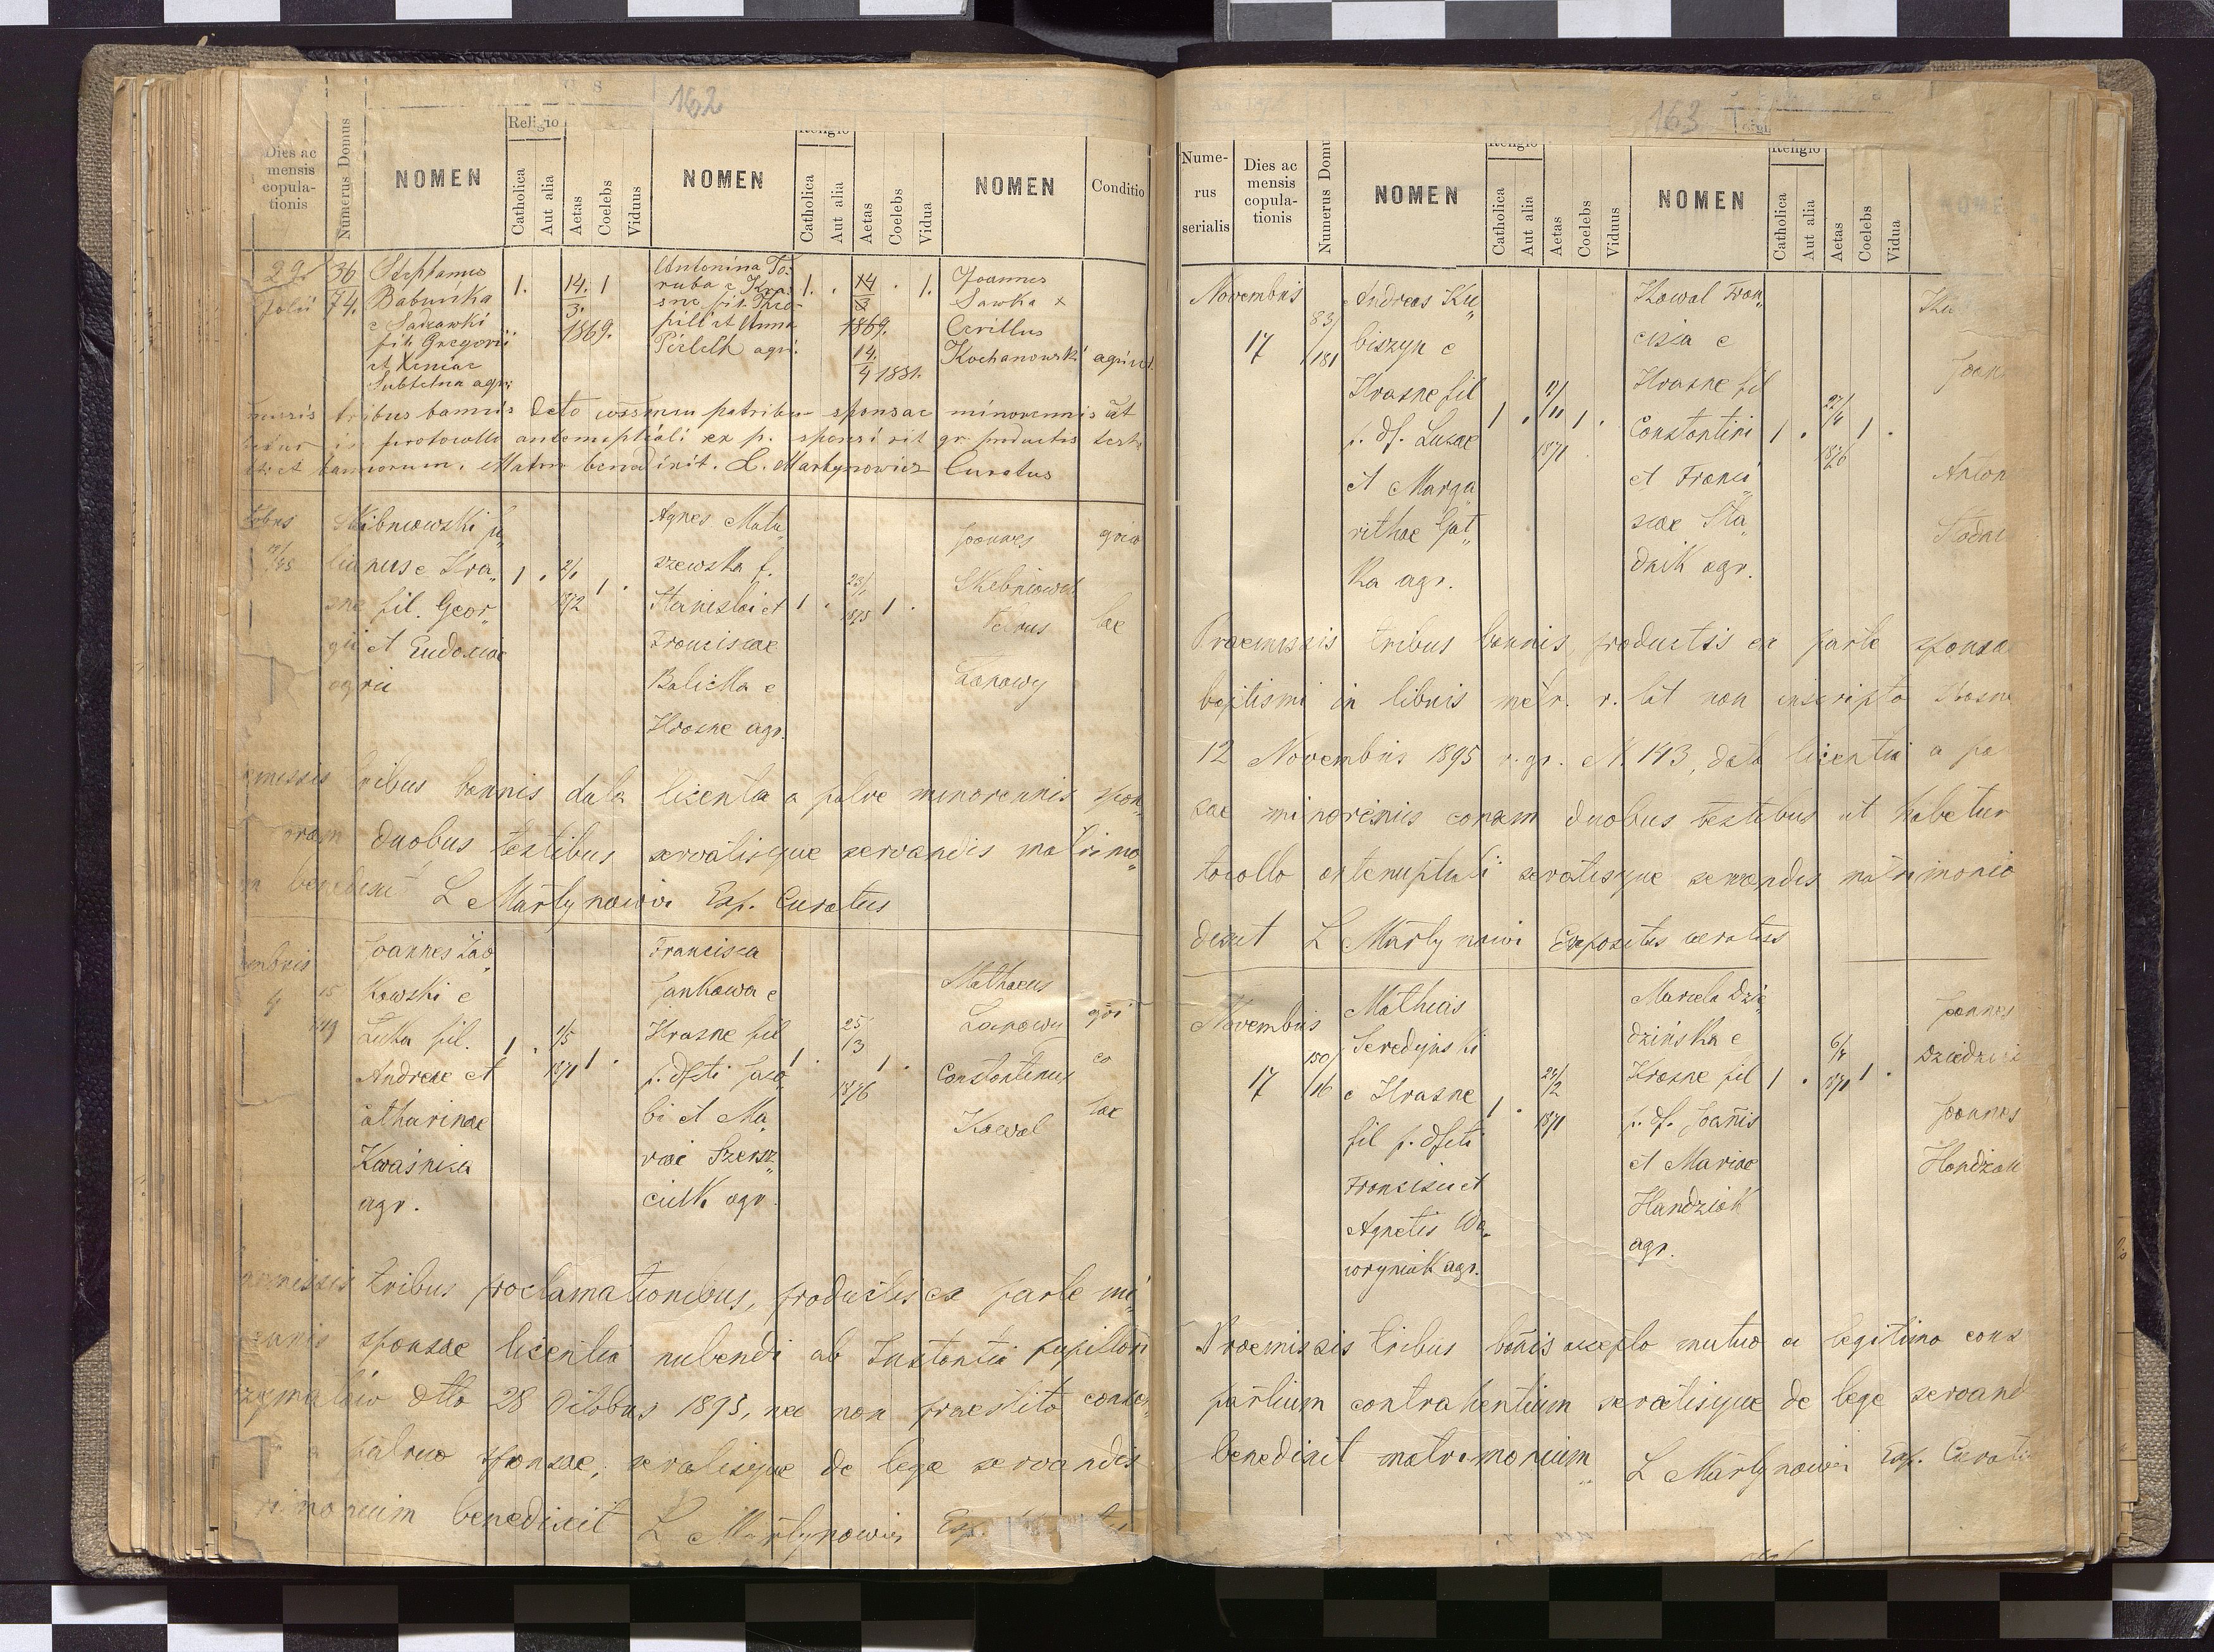 162
Religio
Religio
Dies ac
mensis
copula-
tionis
Numerus Domus
NOMEN
Catholica
Aut alia
Aetas
Coelebs
Viduus
NOMEN
Catholica
Aut alia
Aetas
Coelebs
Vidua
NOMEN
Conditio
29/
Julii
36
74.
Stephanus
Babuńka
e Sadzawki
fil. Gregorii
et Xeniae
Subtelna agr.
1.
14.
3.
1869.
1
Antonina To-
ruba e Kra-
sne fil. Theo-
phili et Anna
Pielech agr.
1.
14
X
1869.
14.
4 1831.
1.
Joannes
Sawka x
Cirillus
Kochanowski
tribus bannis dato consensu patribus sponsae minorennis ut
in protocollo antenuptiali ex p. sponsi rit gr. productis
bannorum. Matrim benedixit. L. Martynowicz Curatus
Skibniowski Ju„
lianus e Kra„
sne fil. Geor„
gii et Eudoxiae
agrii
1
2/1
1872
1
Agnes Matu„
szewska f.
Stanislai et
Franciscae
Balicka e
Krasne agr.
1
23/1
1875
1
Joannes
Skibniowski
Petrus
Lanowy
tribus bannis data licentia a patre minorennis spon„
coram duobus testibus servatisque servandis matrimo„
benedixit L Martynowicz Exp. Curatus
15
149
Joannes Żao„
kowski e
Luka fil.
Andreae et
Catharinae
Kwaśnica
agr.
1
1/5
1871
1
Francisca
Jankowa e
Krasne fil
p. dfcti Jaco„
bi et Ma„
riae Szersz„
ciuk agr.
1
25/
13
1876
1
Mathaeus
Lanowy
Constantinus
Kowal
tribus proclamationibus, productis ex parte mi„
sponsae licentia nubendi ab Instantia pupillari
dtto 28 Octobris 1895, nec non praestito consen„
a patruo sponsae, servatisque de lege servandis
benedixit L Martynowicz Exp.
163
Religio
Religio
Nume-
rus
serialis
Dies ac
mensis
copula-
tionis
Numerus Domu
NOMEN
Catholica
Aut alia
Aetas
Coelebs
Viduus
NOMEN
Catholica
Aut alia
Aetas
Coelebs
Vidua
Novembris
17
83/
181
Andreas Ku„
biszyn e
Krasne fil
p. df. Lucae
et Marga„
rithae Gat„
ka agr.
1
11/
11
1871
1
Kowal Fran„
cisca e
Krasne fil
Constantini
et Franci„
scae Sta„
dnik agr.
1
27/
4
1876
1
Joan
Anton
Praemissis tribus bannis, productis ex parte sponsae
baptismi in libris metr. r. lat non inscripto Krasne
12 Novembris 1895 r. gr. N. 143, data licentia a pa
sae minorennis coram duobus testibus ut habetur
tocollo antenuptiali servatisque servandis matrimonio
dixit L Martynowi Expositus curatus
Novembris
17
150/
16
Mathias
Seredyński
e Krasne
fil p. dfcti
Francisci et
Agnetis Wa„
woryniak agr.
1
24/
2
1871
Marcela Dzie„
dzińska e
Krasne fil
p. df. Joannis
et Mariae
Handziak
agr.
1
6/
1871
1
Joannes
Dziedzi
Joannes
Handziak
Praemissis tribus bannis accepto mutuo a legitimo cons
partium contrahentium servatisque de lege servand
benedixit matrimonium L Martynowicz Exp. Curat